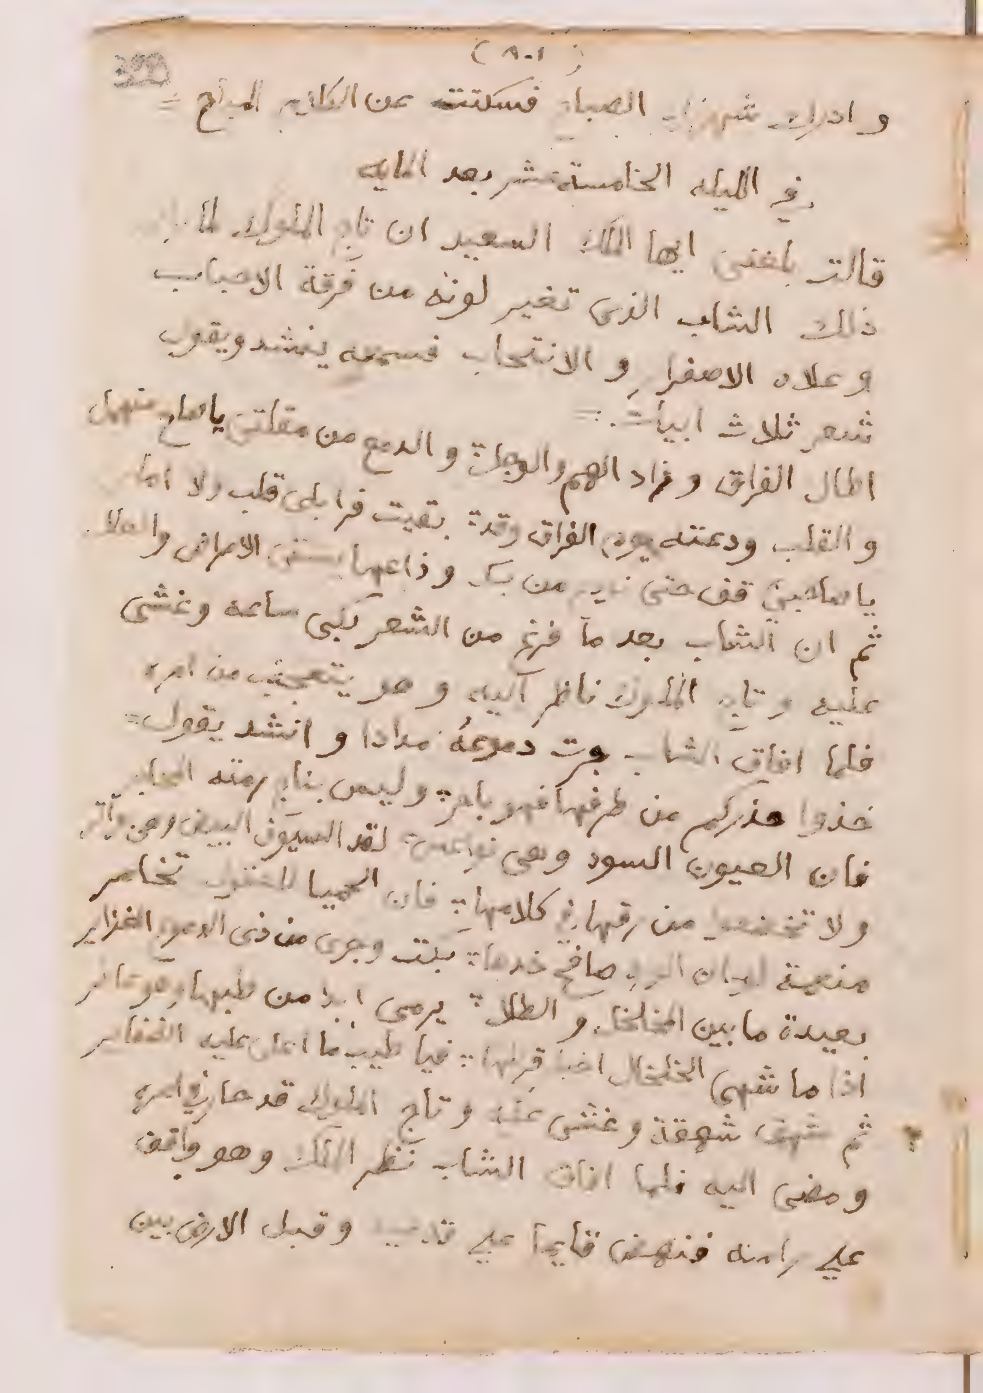 (٩٠١)
399
و ادرك شهرزاد الصباح فسكتت عن الكلام المباح =
في الليله الخامسة عشر بعد المايه
قالت بلغنى ايها الملك السعيد ان تاج الملوك لما
ذلك الشاب الذى تغير لونه من فرقة الاحباب
و علاه الاصفرار و الانتحاب فسمعه ينشد ويقول
شعر ثلاث ابيات =
اطال الفراق و زاد الهم والوجل : و الدمع من مقلتى ياصاح منهمل
و القلب ودعته يوم الفراق وقد : بقيت فرا بلى قلب ولا امل
ياصاحبي قف حتى من و الامراض و
ثم ان الشاب بعد ما فرغ من الشعر بكى ساعه وغشى
عليه و تاج الملوك ناظر اليه و هو يتعجب من امره
فلما افاق الشاب جرت دموعهُ مدادا و انشد يقول =
خذوا حذركم من طرفها فهو باحر : و ليس بناج رمته المحاجر
فان العيون السود و هى نواعس : لقد السيوف البيض وهى تواتر
و لا تخضعوا من رقها في كلامها : فان الحميا للعقول تخامر
منعمة لو ان الورد صافح خدها : بكت وجرى من ذى الدموع الغزاير
بعيدة ما بين المخلخل و الطلا : يرمى ابدا من طيبها وهو عاطر
اذا ما شهى الخلخال اخبا قرطها : فيا طيب ما عليه الضفاير
ثم شهق شهقة و غشى عليه و تاج الملوك قد حار في امره
و مضى اليه فلما افاق الشاب نظر الملك و هو واقف
علي راسه فنهض قايما علي قدميه و قبل الارض بين